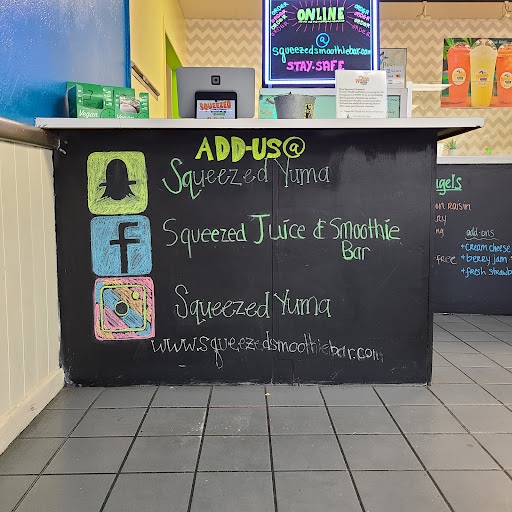 ORDER ORDER
ONLINE
@
squeezedsmoothiebar.com
STAY SAFE
SQUEEZED
Vegan
ADD-US@
Squeezed Yuma
Squeezed Juice & Smoothie
Bar
Squeezed Yuma
www.squeezedsmoothiebar.com
agels
on raisin
add-ons
+cream cheese
free
+berry jam
+fresh strawb